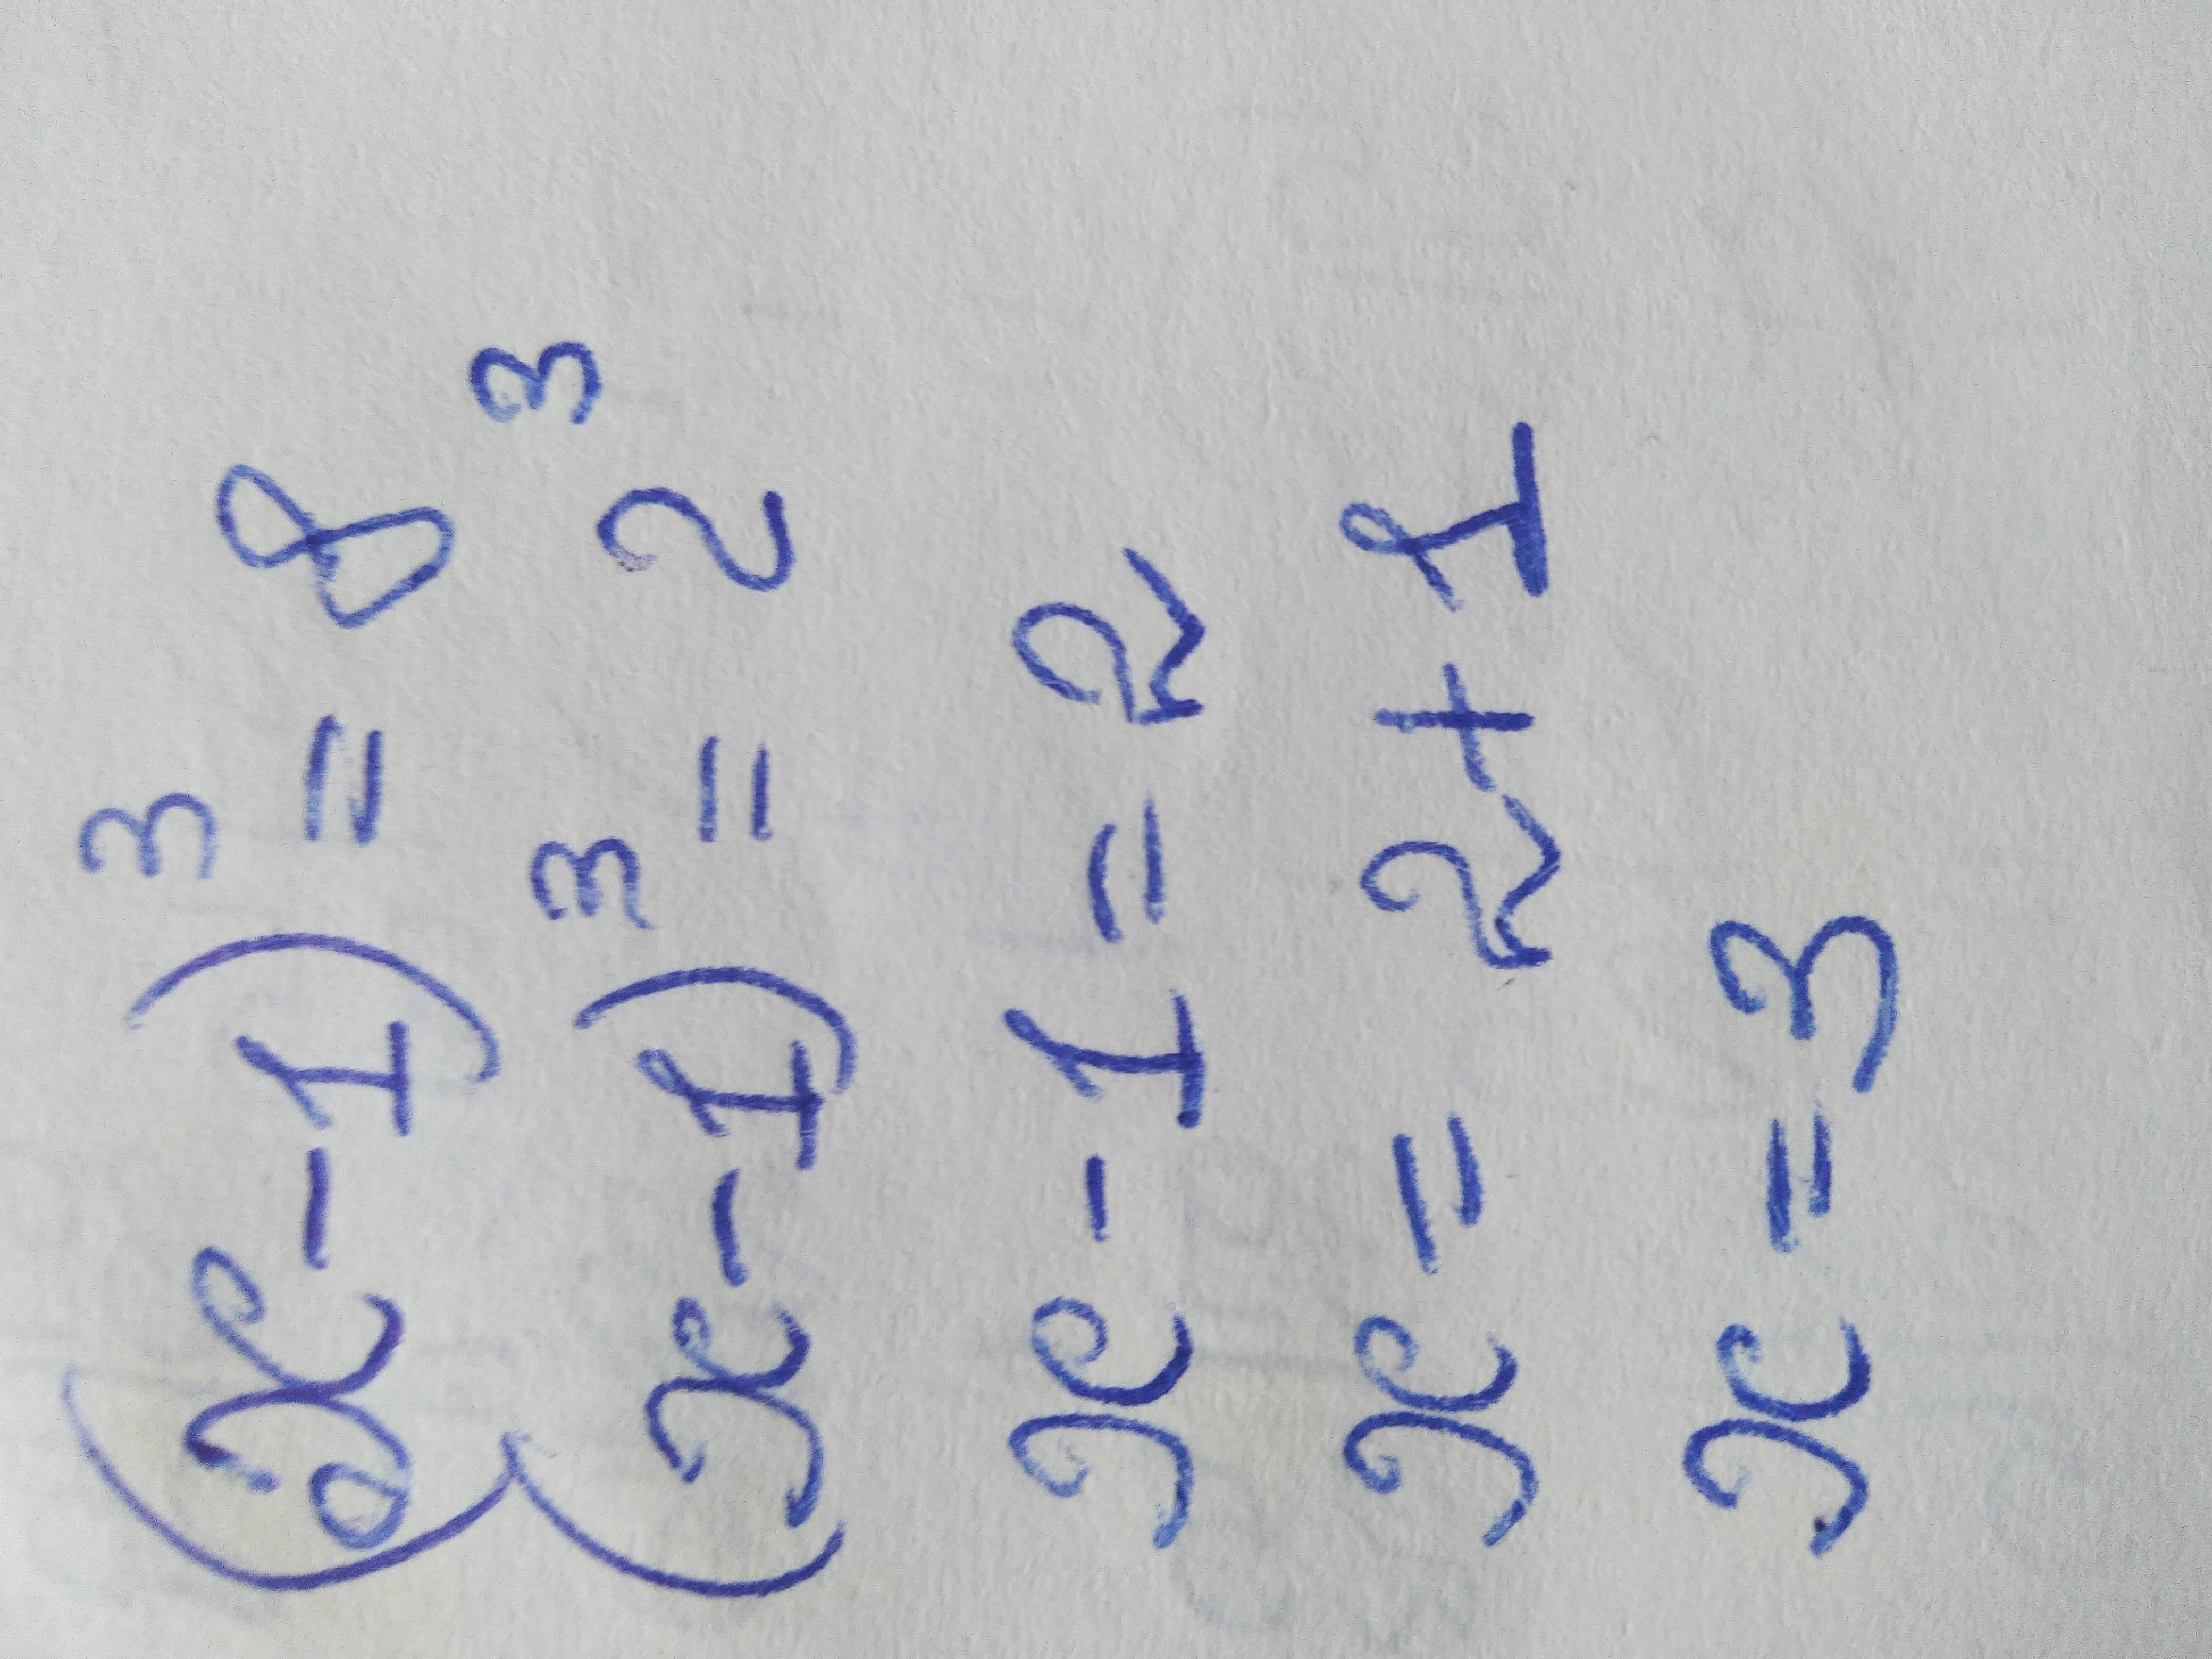 (x-1)³ = 8
(x-1)³ = 2³
x-1 = 2
x = 2+1
x = 3